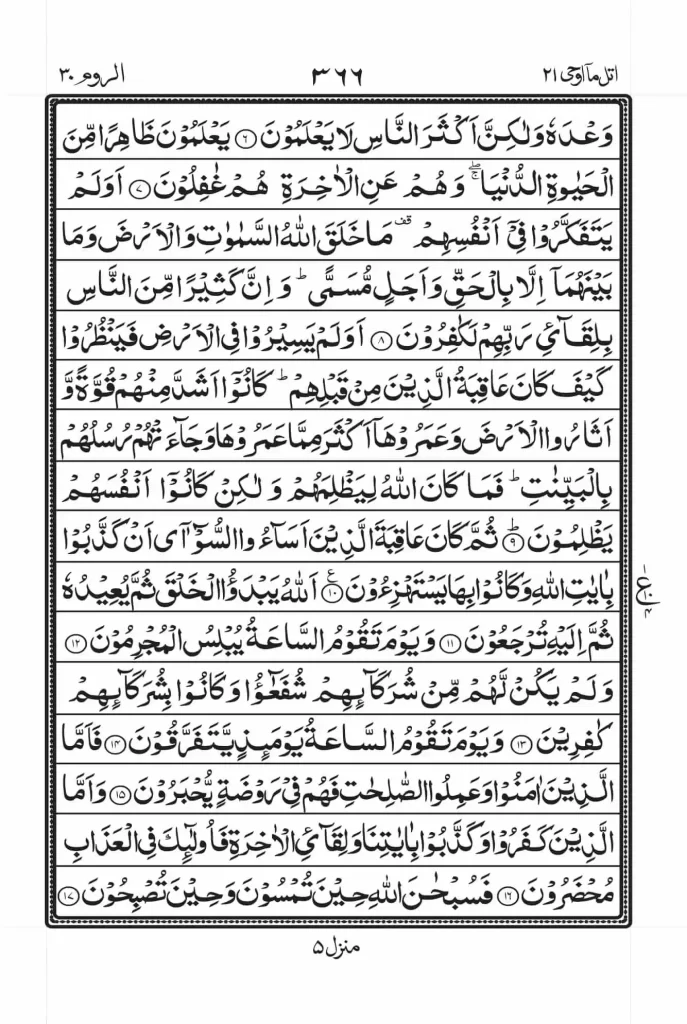 اتل مآ اوحی ۲۱ ۳۶۶ الروم ۳۰
وَعۡدَهٗ وَلٰكِنَّ اَكۡثَرَ النَّاسِ لَا يَعۡلَمُوۡنَ ۶ يَعۡلَمُوۡنَ ظَاهِرًا مِّنَ
الۡحَيٰوةِ الدُّنۡيَا ۖۚ وَهُمۡ عَنِ الۡاٰخِرَةِ هُمۡ غٰفِلُوۡنَ ۷ اَوَلَمۡ
يَتَفَكَّرُوۡا فِىۡۤ اَنۡفُسِهِمۡ قف مَا خَلَقَ اللّٰهُ السَّمٰوٰتِ وَالۡاَرۡضَ وَمَا
بَيۡنَهُمَاۤ اِلَّا بِالۡحَقِّ وَاَجَلٍ مُّسَمًّى ؕ وَ اِنَّ كَثِيۡرًا مِّنَ النَّاسِ
بِلِقَآئِ رَبِّهِمۡ لَكٰفِرُوۡنَ ۸ اَوَلَمۡ يَسِيۡرُوۡا فِى الۡاَرۡضِ فَيَنۡظُرُوۡا
كَيۡفَ كَانَ عَاقِبَةُ الَّذِيۡنَ مِنۡ قَبۡلِهِمۡ ؕ كَانُوۡۤا اَشَدَّ مِنۡهُمۡ قُوَّةً وَّ
اَثَارُوا الۡاَرۡضَ وَعَمَرُوۡهَاۤ اَكۡثَرَ مِمَّا عَمَرُوۡهَا وَجَآءَتۡهُمۡ رُسُلُهُمۡ
بِالۡبَيِّنٰتِ ؕ فَمَا كَانَ اللّٰهُ لِيَظۡلِمَهُمۡ وَ لٰكِنۡ كَانُوۡۤا اَنۡفُسَهُمۡ
يَظۡلِمُوۡنَ ؕ ۹ ثُمَّ كَانَ عَاقِبَةَ الَّذِيۡنَ اَسَآءُوا السُّوۡٓآٰى اَنۡ كَذَّبُوۡا
بِاٰيٰتِ اللّٰهِ وَكَانُوۡا بِهَا يَسۡتَهۡزِءُوۡنَ ۱۰ اَللّٰهُ يَبۡدَؤُا الۡخَلۡقَ ثُمَّ يُعِيۡدُهٗ
ثُمَّ اِلَيۡهِ تُرۡجَعُوۡنَ ۱۱ وَيَوۡمَ تَقُوۡمُ السَّاعَةُ يُبۡلِسُ الۡمُجۡرِمُوۡنَ ۱۲
وَلَمۡ يَكُنۡ لَّهُمۡ مِّنۡ شُرَكَآئِهِمۡ شُفَعٰٓؤُا وَكَانُوۡا بِشُرَكَآئِهِمۡ
كٰفِرِيۡنَ ۱۳ وَيَوۡمَ تَقُوۡمُ السَّاعَةُ يَوۡمَئِذٍ يَّتَفَرَّقُوۡنَ ۱۴ فَاَمَّا
الَّذِيۡنَ اٰمَنُوۡا وَعَمِلُوا الصّٰلِحٰتِ فَهُمۡ فِىۡ رَوۡضَةٍ يُّحۡبَرُوۡنَ ۱۵ وَاَمَّا
الَّذِيۡنَ كَفَرُوۡا وَكَذَّبُوۡا بِاٰيٰتِنَا وَلِقَآئِ الۡاٰخِرَةِ فَاُولٰٓئِكَ فِى الۡعَذَابِ
مُحۡضَرُوۡنَ ۱۶ فَسُبۡحٰنَ اللّٰهِ حِيۡنَ تُمۡسُوۡنَ وَحِيۡنَ تُصۡبِحُوۡنَ ۱۷
ع ۱۰ ۴
منزل ۵